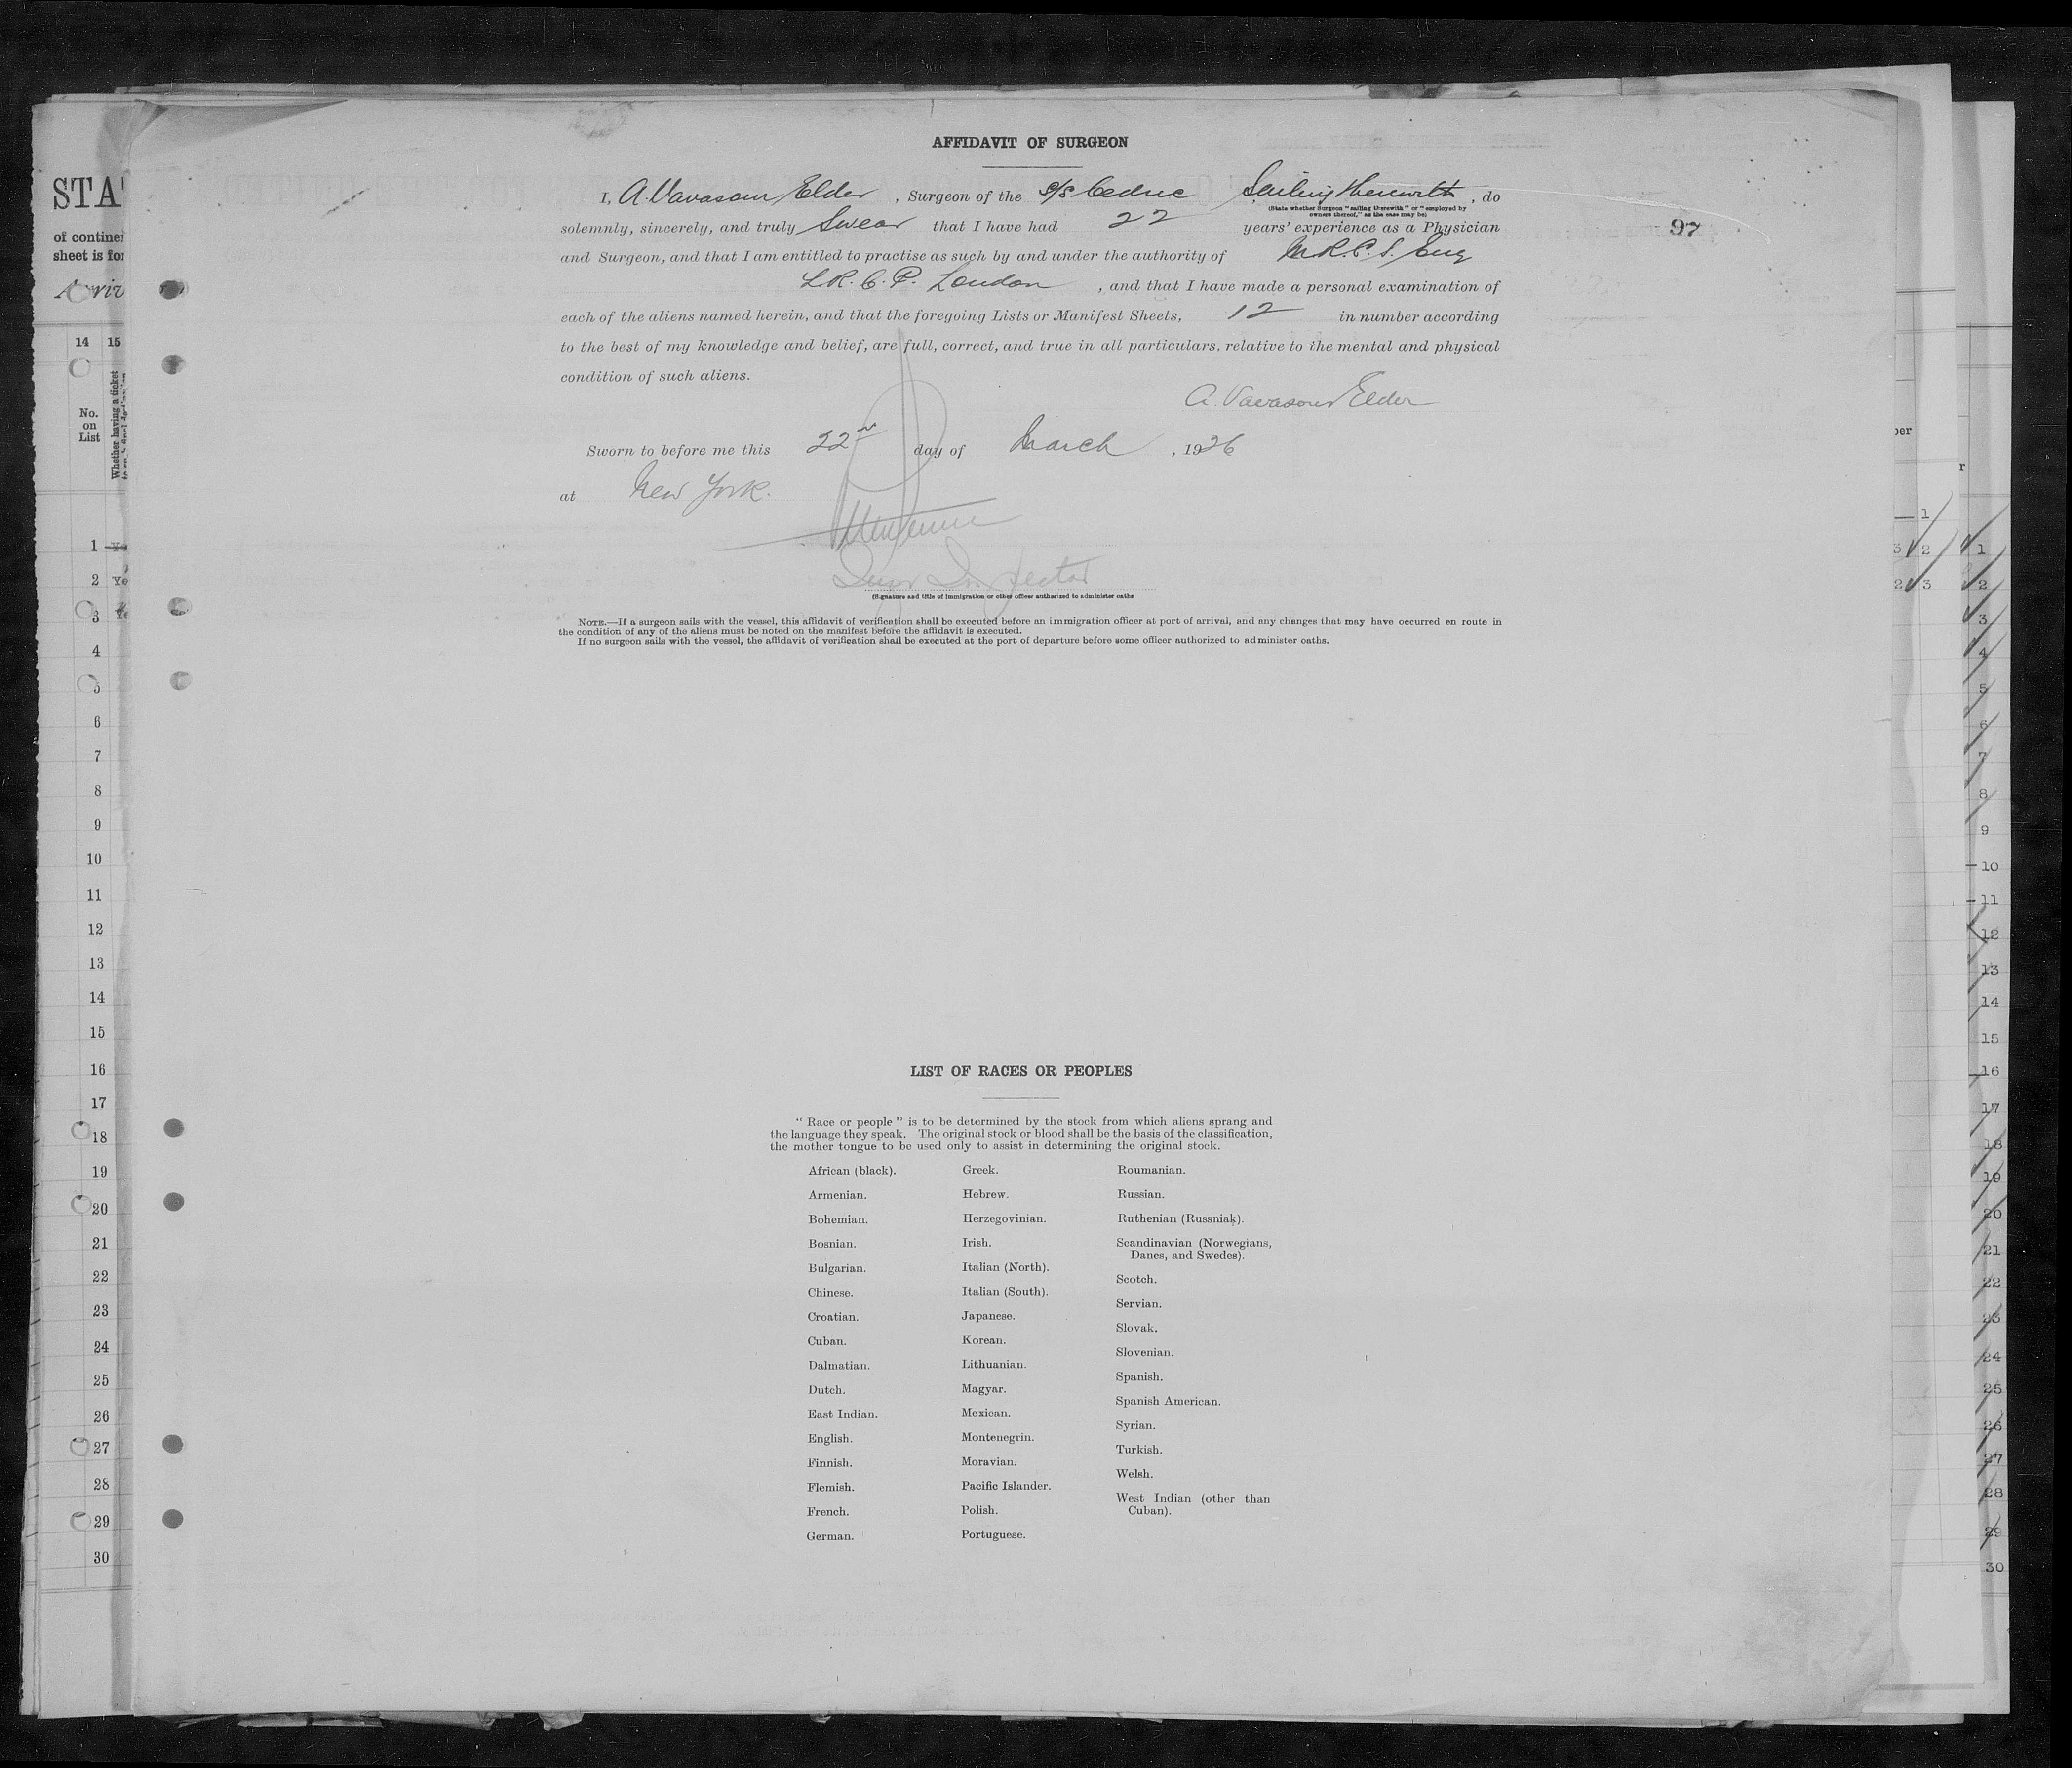 AFFIDAVIT OF SURGEON
I, A. Vavasour Elder, Surgeon of the S/S Cedric Sailing therewith, do
(State whether Surgeon "sailing therewith" or "employed by
owners thereof," as the case may be)
solemnly, sincerely, and truly Swear that I have had 22 years' experience as a Physician
97
and Surgeon, and that I am entitled to practise as such by and under the authority of M.R.C.S. Eng
L.R.C.P. London, and that I have made a personal examination of
each of the aliens named herein, and that the foregoing Lists or Manifest Sheets, 12 in number according
to the best of my knowledge and belief, are full, correct, and true in all particulars, relative to the mental and physical
condition of such aliens.
A. Vavasour Elder
Sworn to before me this 22nd day of March, 1926
at New York.
Inspector
(Signature and title of immigration or other officer authorized to administer oaths
NOTE.—If a surgeon sails with the vessel, this affidavit of verification shall be executed before an immigration officer at port of arrival, and any changes that may have occurred en route in
the condition of any of the aliens must be noted on the manifest before the affidavit is executed.
If no surgeon sails with the vessel, the affidavit of verification shall be executed at the port of departure before some officer authorized to administer oaths.
LIST OF RACES OR PEOPLES
"Race or people" is to be determined by the stock from which aliens sprang and
the language they speak. The original stock or blood shall be the basis of the classification,
the mother tongue to be used only to assist in determining the original stock.
African (black).
Armenian.
Bohemian.
Bosnian.
Bulgarian.
Chinese.
Croatian.
Cuban.
Dalmatian.
Dutch.
East Indian.
English.
Finnish.
Flemish.
French.
German.
Greek.
Hebrew.
Herzegovinian.
Irish.
Italian (North).
Italian (South).
Japanese.
Korean.
Lithuanian.
Magyar.
Mexican.
Montenegrin.
Moravian.
Pacific Islander.
Polish.
Portuguese.
Roumanian.
Russian.
Ruthenian (Russniak).
Scandinavian (Norwegians,
Danes, and Swedes).
Scotch.
Servian.
Slovak.
Slovenian.
Spanish.
Spanish American.
Syrian.
Turkish.
Welsh.
West Indian (other than
Cuban).
STA
of contine
sheet is for
Arriv
14 15
No.
on
List
Whether having a ticket
1
2 Ye
3 Ye
4
5
6
7
8
9
10
11
12
13
14
15
16
17
18
19
20
21
22
23
24
25
26
27
28
29
30
ber
1
3 2
2 3
r
1
2
3
4
5
6
7
8
9
10
11
12
13
14
15
16
17
18
19
20
21
22
23
24
25
26
27
28
29
30